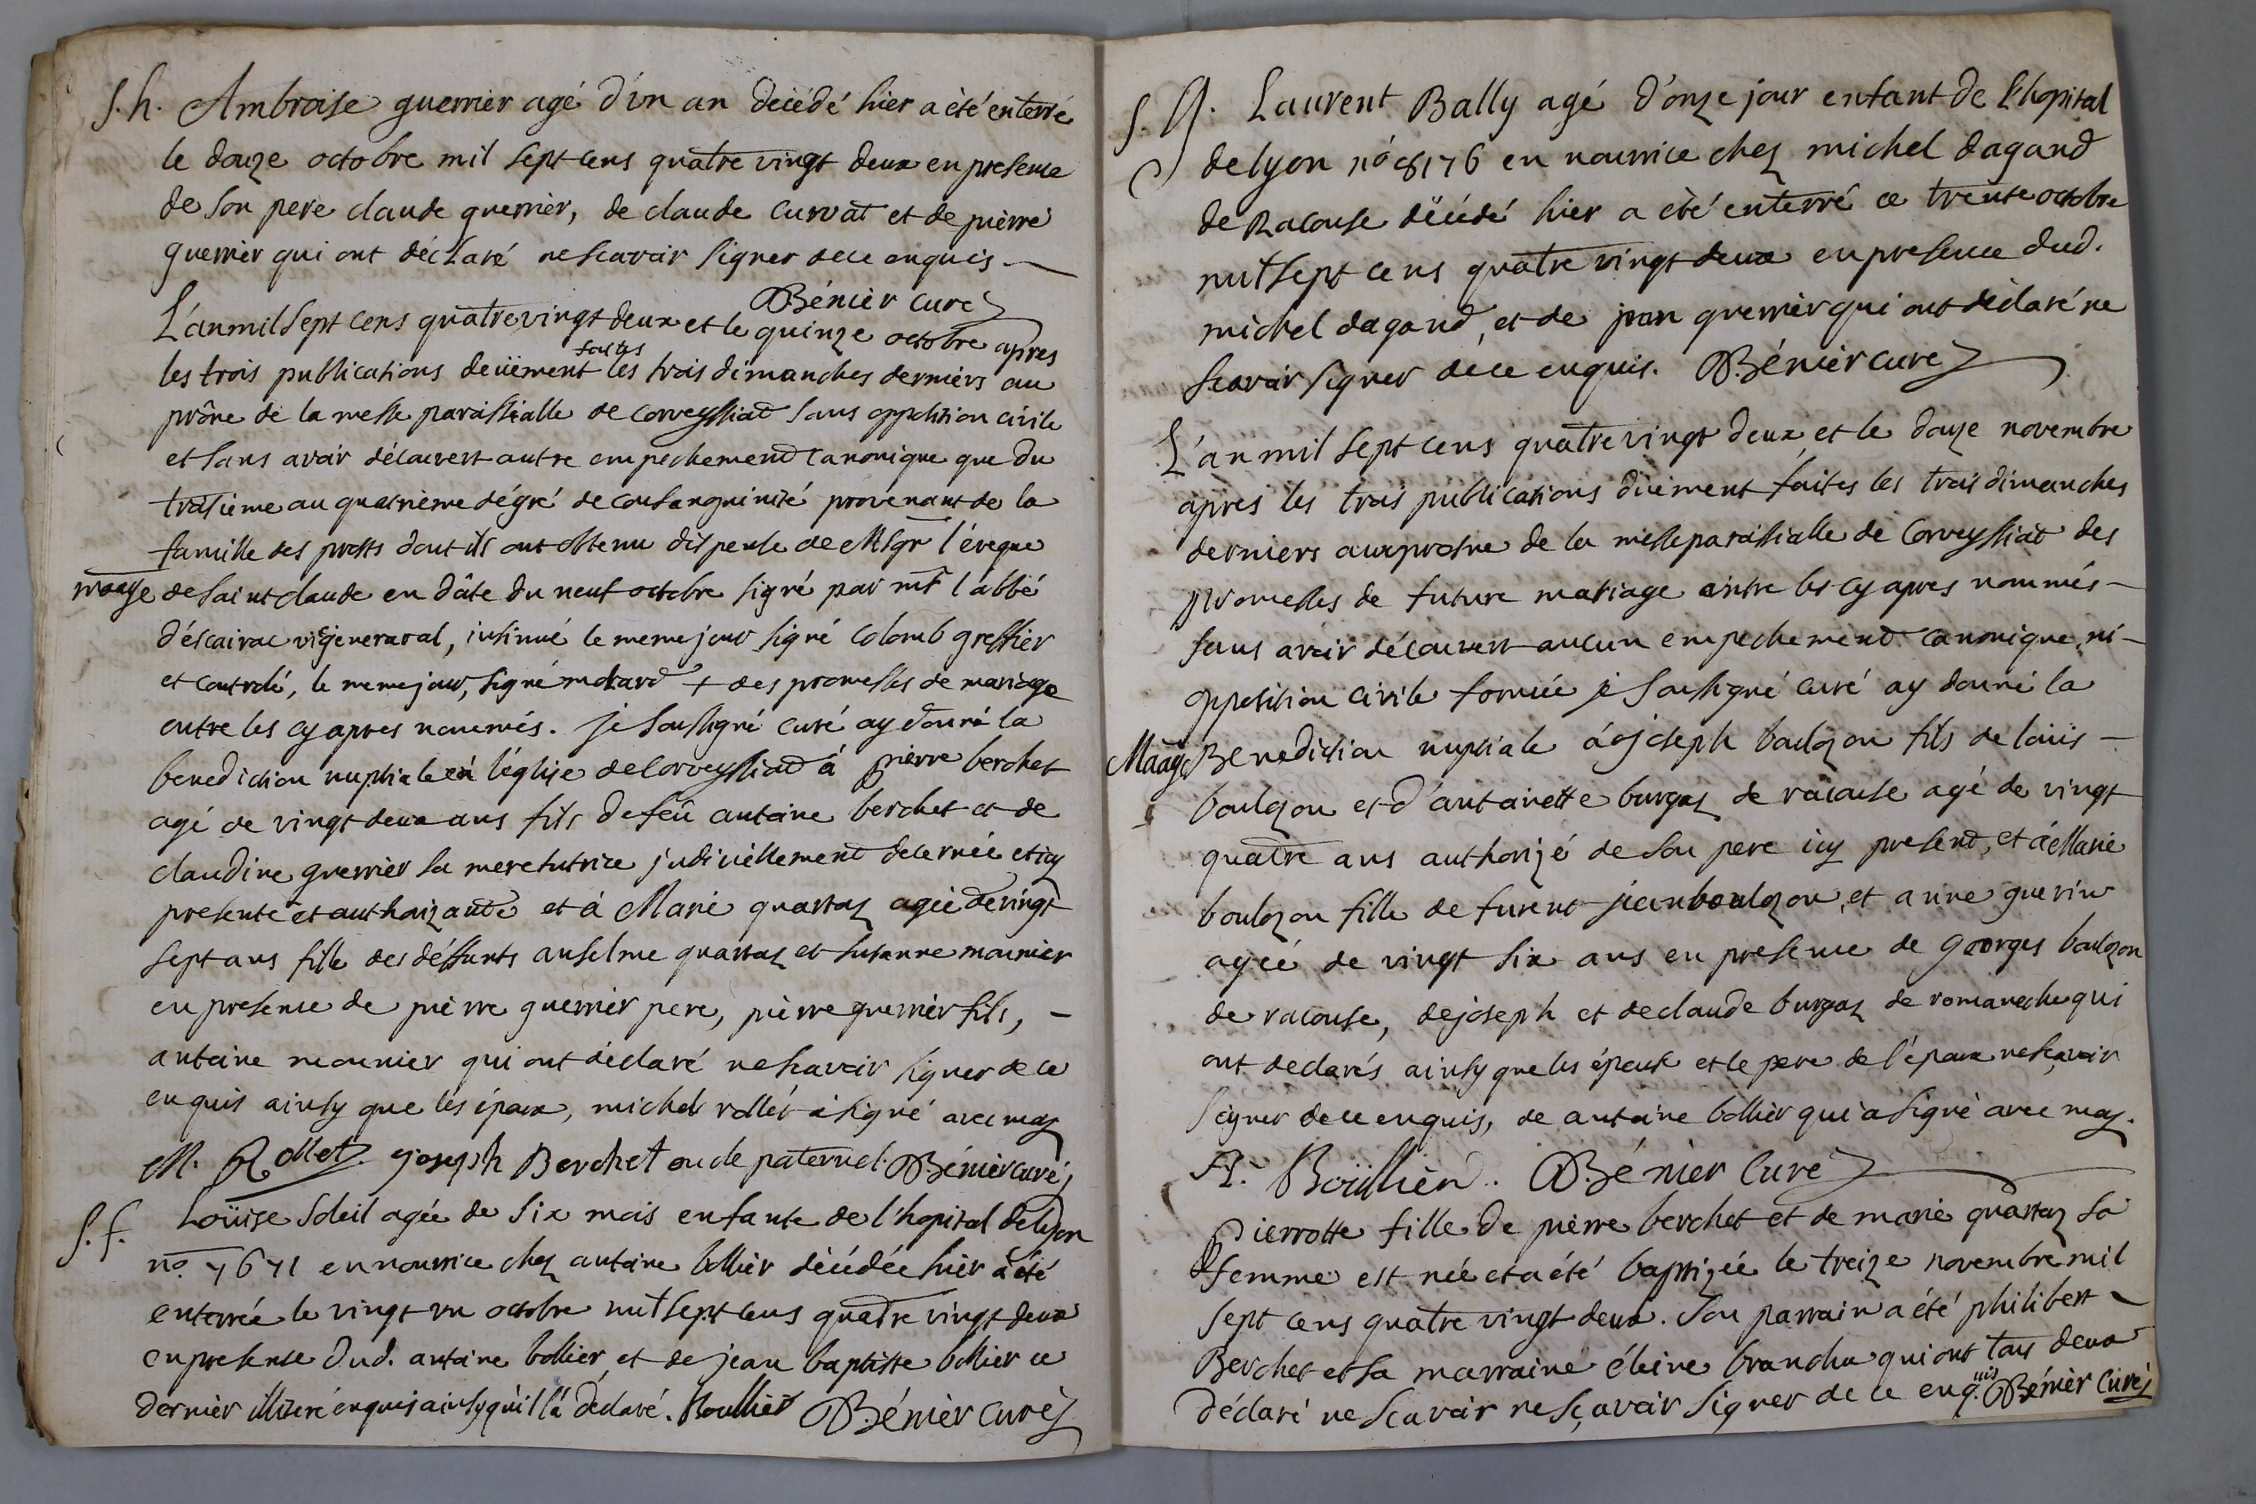 S. h. Ambroise guerrier agé d'vn an décédé hier a été enterré
le douze octobre mil sept cens quatre vingt deux en presence
de son pere claude guerrier, de claude curvat et de pierre
guerrier qui ont déclaré ne scavoir signer de ce enquis
Bénier curé
L'an mil sept cens quatre vingt deux et le quinze octobre apres
les trois publications deüement faites les trois dimanches derniers au
prône de la messe paroissialle de corveyssiad sans opposition civile
et sans avoir découvert autre empechement canonique que du
troisieme au quatrieme dégré de consanguinité provenant de la
famille des prosts dont ils ont obtenu dispense de Msgr l'éveque
maage de saint claude en dâte du neuf octobre signé par mr l'abbé
d'éscairac vic generaral, insinué le meme jour signé colomb greffier
et controlé, le meme jour, signé molard + des promesses de mariage
entre les cy apres nommés. je soussigné curé ay donné la
benediction nuptiale en l'église de corveyssiad à pierre berchet
agé de vingt deux ans fils de feû antoine berchet et de
claudine guerrier sa mere tutrice judiciellement decernée et icy
presente et authorizante et à Marie quartaz agée de vingt
sept ans fille des déffunts anselme quartaz et susanne mounier
en presence de pierre guerrier pere, pierre guerrier fils,
antoine mounier qui ont déclaré ne scavoir signer de ce
enquis ainsy que les époux, michel rollet a signé avec moy
M. Rollet. joseph Berchet oncle paternel. Bénier curé
S. f. Loüise soleil agée de six mois enfante de l'hopital de lyon
no. 7671 en nourrice chez antoine bollier décédée hier a été
enterrée le vingt vn octobre mil sept cens quatre vingt deux
en presence dud. antoine bollier et de jean baptiste bollier ce
dernier illiteré enquis ainsy qu'il l'a déclaré. Boullier Bénier curé
S. g. Laurent Bally agé d'onze jour enfant de l'hopital
de lyon no 8176 en nourrice chez michel dagand
de racouse décédé hier a été enterré ce trente octobre
mil sept cens quatre vingt deux en presence dud.
michel dagand, et de jean guerrier qui ont déclaré ne
scavoir signer de ce enquis. Bénier curé
L'an mil sept cens quatre vingt deux et le douze novembre
apres les trois publications düement faites les trois dimanches
derniers aux prosne de la messe paroissialle de Corveyssiat des
promesses de future mariage entre les cy apres nommés
sans avoir découvert aucun empechement canonique, ni
opposition civile formée je soussigné curé ay donné la
Maage Benediction nuptiale à joseph boulozon fils de loüis
boulozon et d'antoinette burgaz de racouse agé de vingt
quatre ans authorizé de son pere icy present, et à Marie
boulozon fille de furent jean boulozon, et anne guerin
agée de vingt six ans en presence de georges boulozon
de racouse, de joseph et de claude burgaz de romaneche qui
ont declarés ainsy que les époux et le pere de l'époux ne sçavoir
signer de ce enquis, de antoine bollier qui a signé avec moy.
A. Boüllier. Bénier Curé
Pierrotte fille de pierre berchet et de marie quartaz sa
femme est née et a été baptizée le treize novembre mil
sept cens quatre vingt deux. Son parrain a été philibert
Berchet et sa marraine éleine branche qui ont tous deux
déclaré ne scavoir ne sçavoir signer de ce enquis Bénier Curé